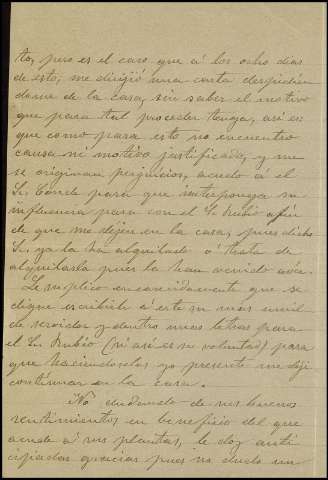 to, pero es el caso que á los ocho dias
de esto, me dirijió una carta despidien
dome de la casa, sin saber el motivo
que para tal proceder tenga, asi es
que como para esto no encuentro
causa ni motivo justificado, y me
se originan perjuicios, acudo á el
Sr. Conde para que interponga su
influencia para con el Sr. Rubio afin
de que me dejen en la casa, pues dicho
Sr. ya la ha alquilado ó trata de
alquilarla pues la han venido
Le suplico encarecidamente que se
digne escribirle á este su mas umil
de servidor y dentro unas letras para
el Sr. Rubio (si asi es su voluntad) para
que haciendoselas yo presente me deje
continuar en la casa.
No dudando de sus buenos
sentimientos en beneficio del que
acude á sus plantas, le doy anti
cipadas gracias pues no dudo un